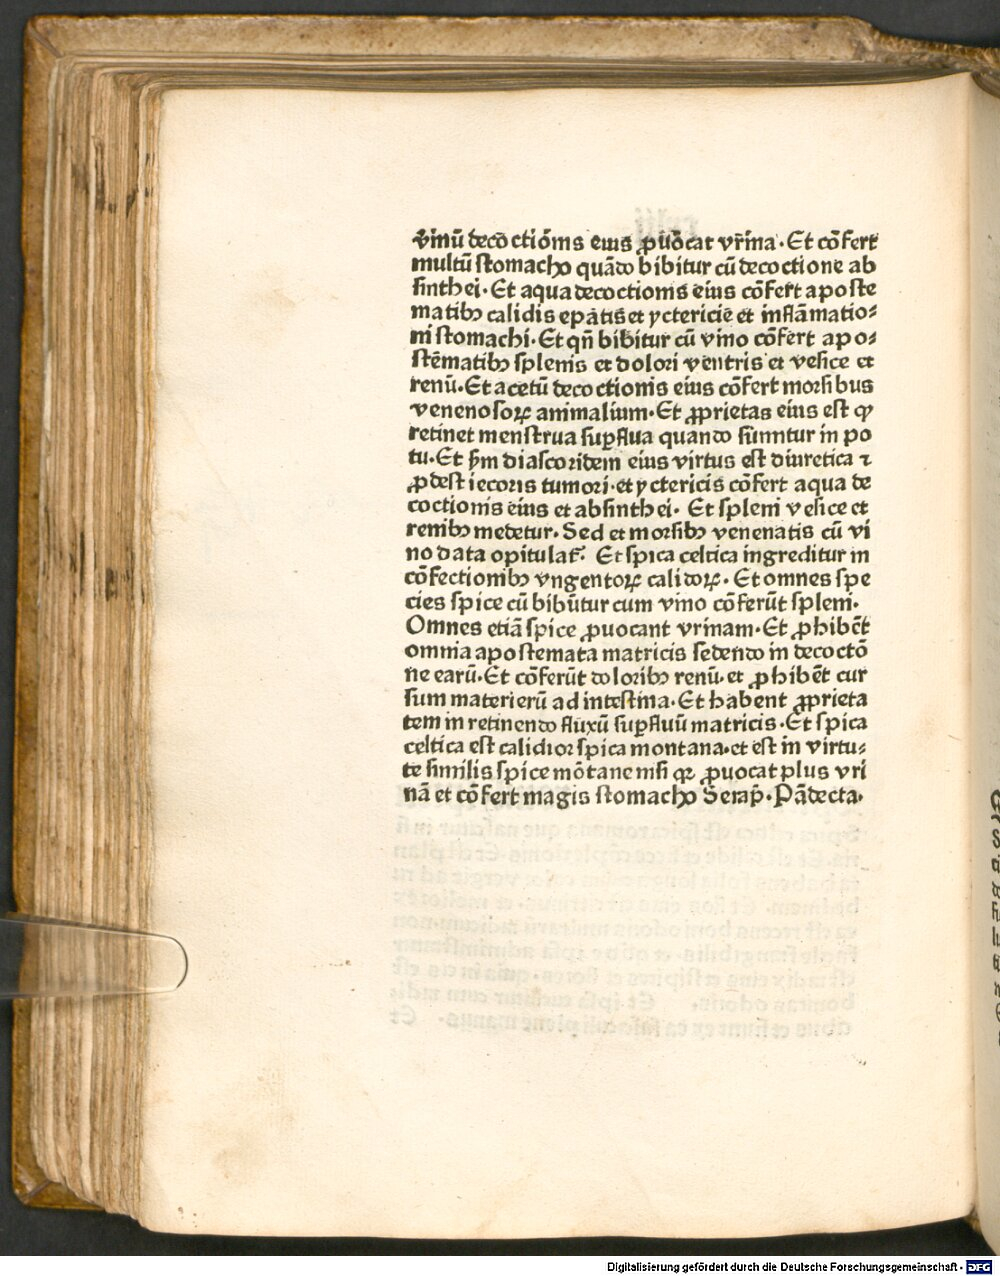 vinū decoctiōnis eius ꝓuocat vrīna. Et cōfert
multū stomacho quādo bibitur cū decoctione ab
sinthei. Et aqua decoctionis eius cōfert aposte
matibꝫ calidis epatis et yctericie et inflāmatio⸗
ni stomachi. Et qn̄ bibitur cū vino cōfert apo⸗
stēmatibꝫ splenis et dolori ventris et vesice et
renū. Et acetū decoctionis eius cōfert morsibus
venenosoꝝ animalium. Et ꝓprietas eius est ꝙ
retinet menstrua suꝑflua quando sūuntur in po
tu. Et ẜm diascoridem eius virtus est diuretica ⁊
ꝓdest iecoris tumori. et yctericis cōfert aqua de
coctionis eius et absinthei. Et spleni vesice et
renibꝫ medetur. Sed et morsibꝫ venenatis cū vi
no data opitulat᷑. Et spica celtica ingreditur in
cōfectionibꝫ vngentoꝝ calidoꝝ. Et omnes spe
cies spice cū bibūtur cum vino cōferūt spleni.
Omnes etiā spice ꝓuocant vrinam. Et ꝓhibēt
omnia apostemata matricis sedendo in decoctō
ne earū. Et cōferūt doloribꝫ renū. et ꝓhibēt cur
sum materierū ad intestina. Et habent ꝓprieta
tem in retinendo fluxū suꝑfluū matricis. Et spica
celtica est calidior spica montana. et est in virtu⸗
te similis spice mōtane nisi qꝛ ꝓuocat plus vri
nā et cōfert magis stomacho Serap̄. Pādecta.
Digitalisierung gefördert durch die Deutsche Forschungsgemeinschaft - DFG